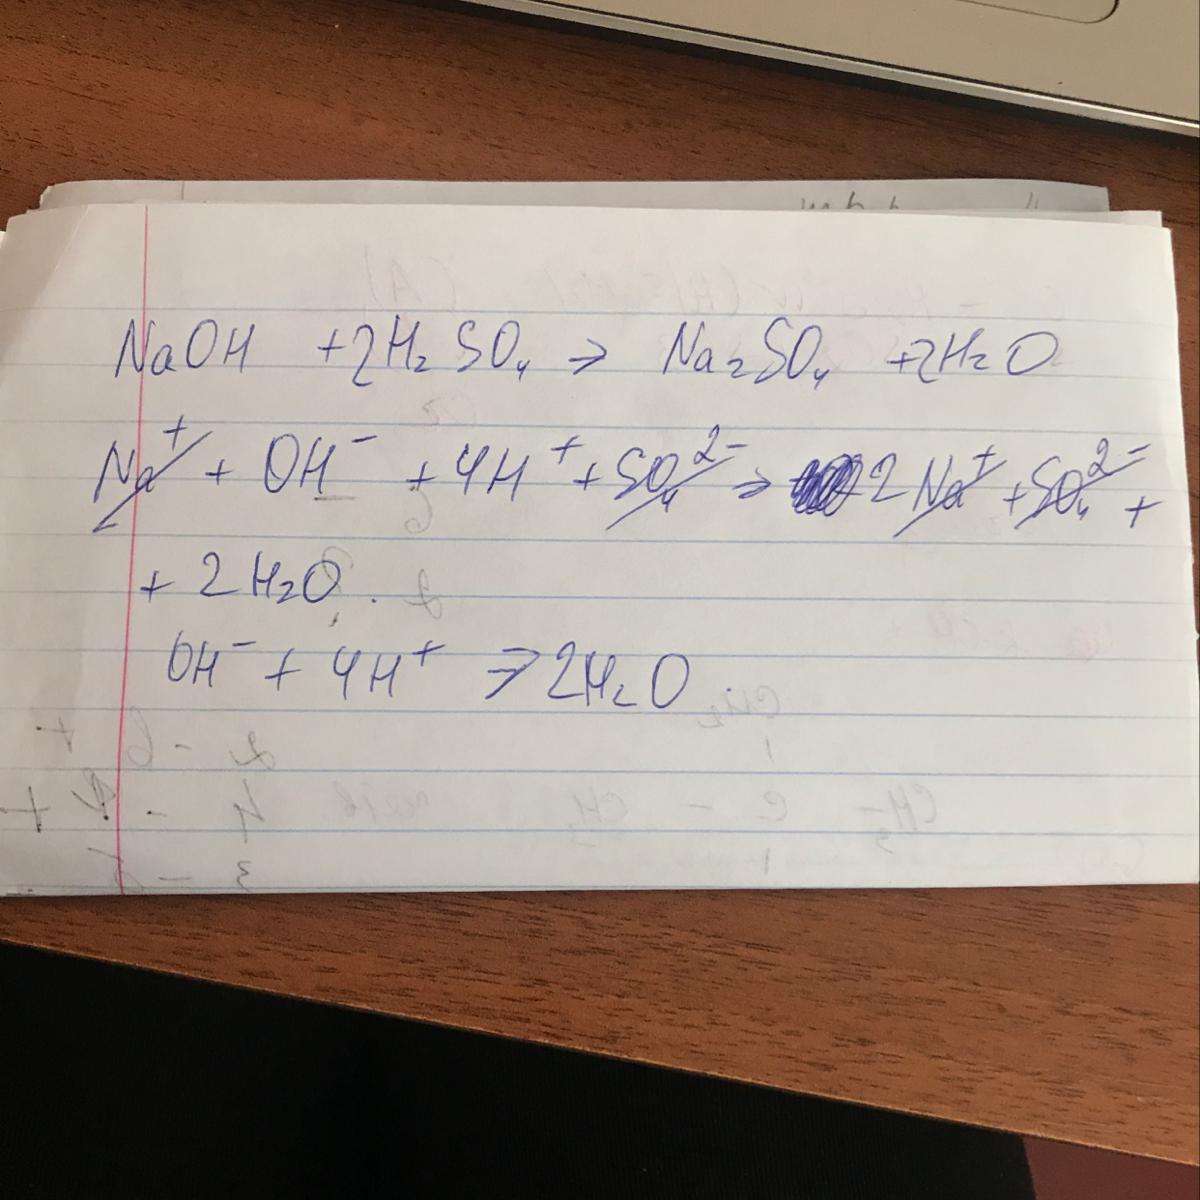 NaOH + 2H₂SO₄ → Na₂SO₄ + 2H₂O
Na⁺ + OH⁻ + 4H⁺ + SO₄²⁻ → 2Na⁺ + SO₄²⁻ +
+ 2H₂O.
OH⁻ + 4H⁺ → 2H₂O